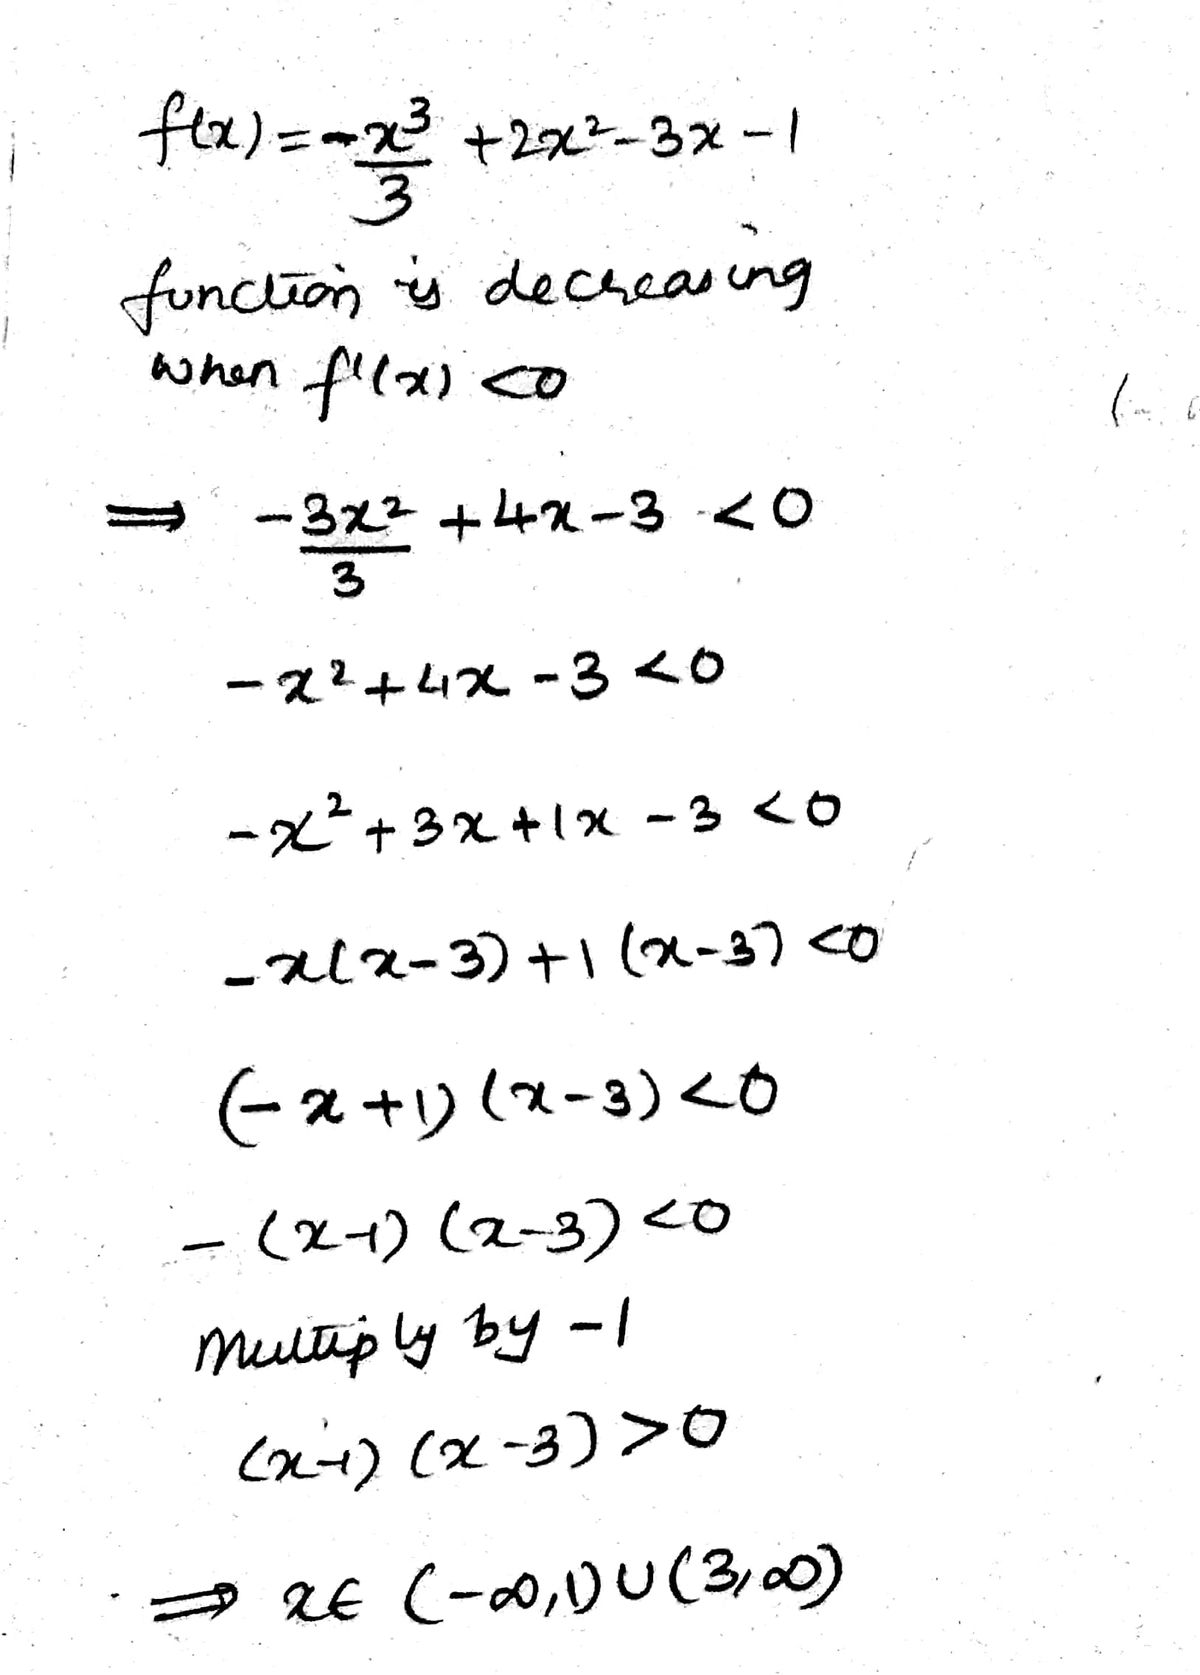 f(x) = -x³/3 + 2x² - 3x - 1
function is decreasing
when f'(x) <0
⇒ -3x²/3 + 4x - 3 < 0
-x² + 4x - 3 < 0
-x² + 3x + 1x - 3 < 0
-x(x-3) + 1(x-3) <0
(-x+1)(x-3) < 0
-(x-1)(x-3) <0
Multiply by -1
(x-1)(x-3) > 0
⇒ x∈ (-∞,1)∪(3,∞)